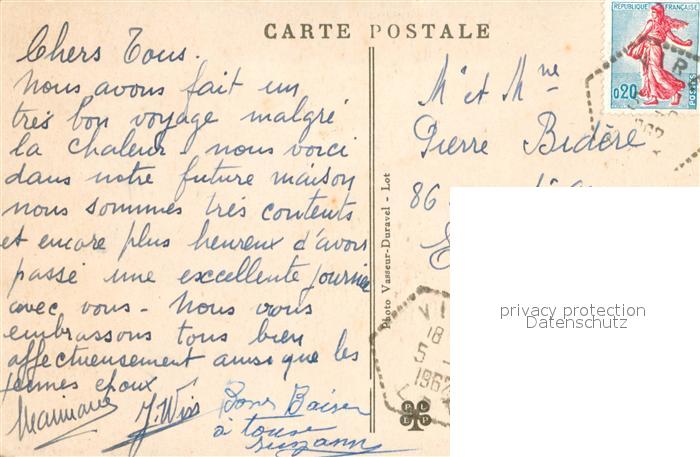 CARTE POSTALE
REPUBLIQUE FRANÇAISE
0,20
POSTES
Chers Tous.
Nous avons fait un
très bon voyage malgré
la chaleur - nous voici
dans notre future maison
nous sommes très contents
et encore plus heureux d'avoir
passé une excellente journée
avec vous - Nous vous
embrassons tous bien
affectueusement ainsi que les
jeunes époux
J. Wiss
Bons Baiser
à tous
Suzann
Mr et Mme
Pierre Bidéré
86
Photo Vasseur-Duravel - Lot
VI
18
5 -
196
privacy protection
Datenschutz